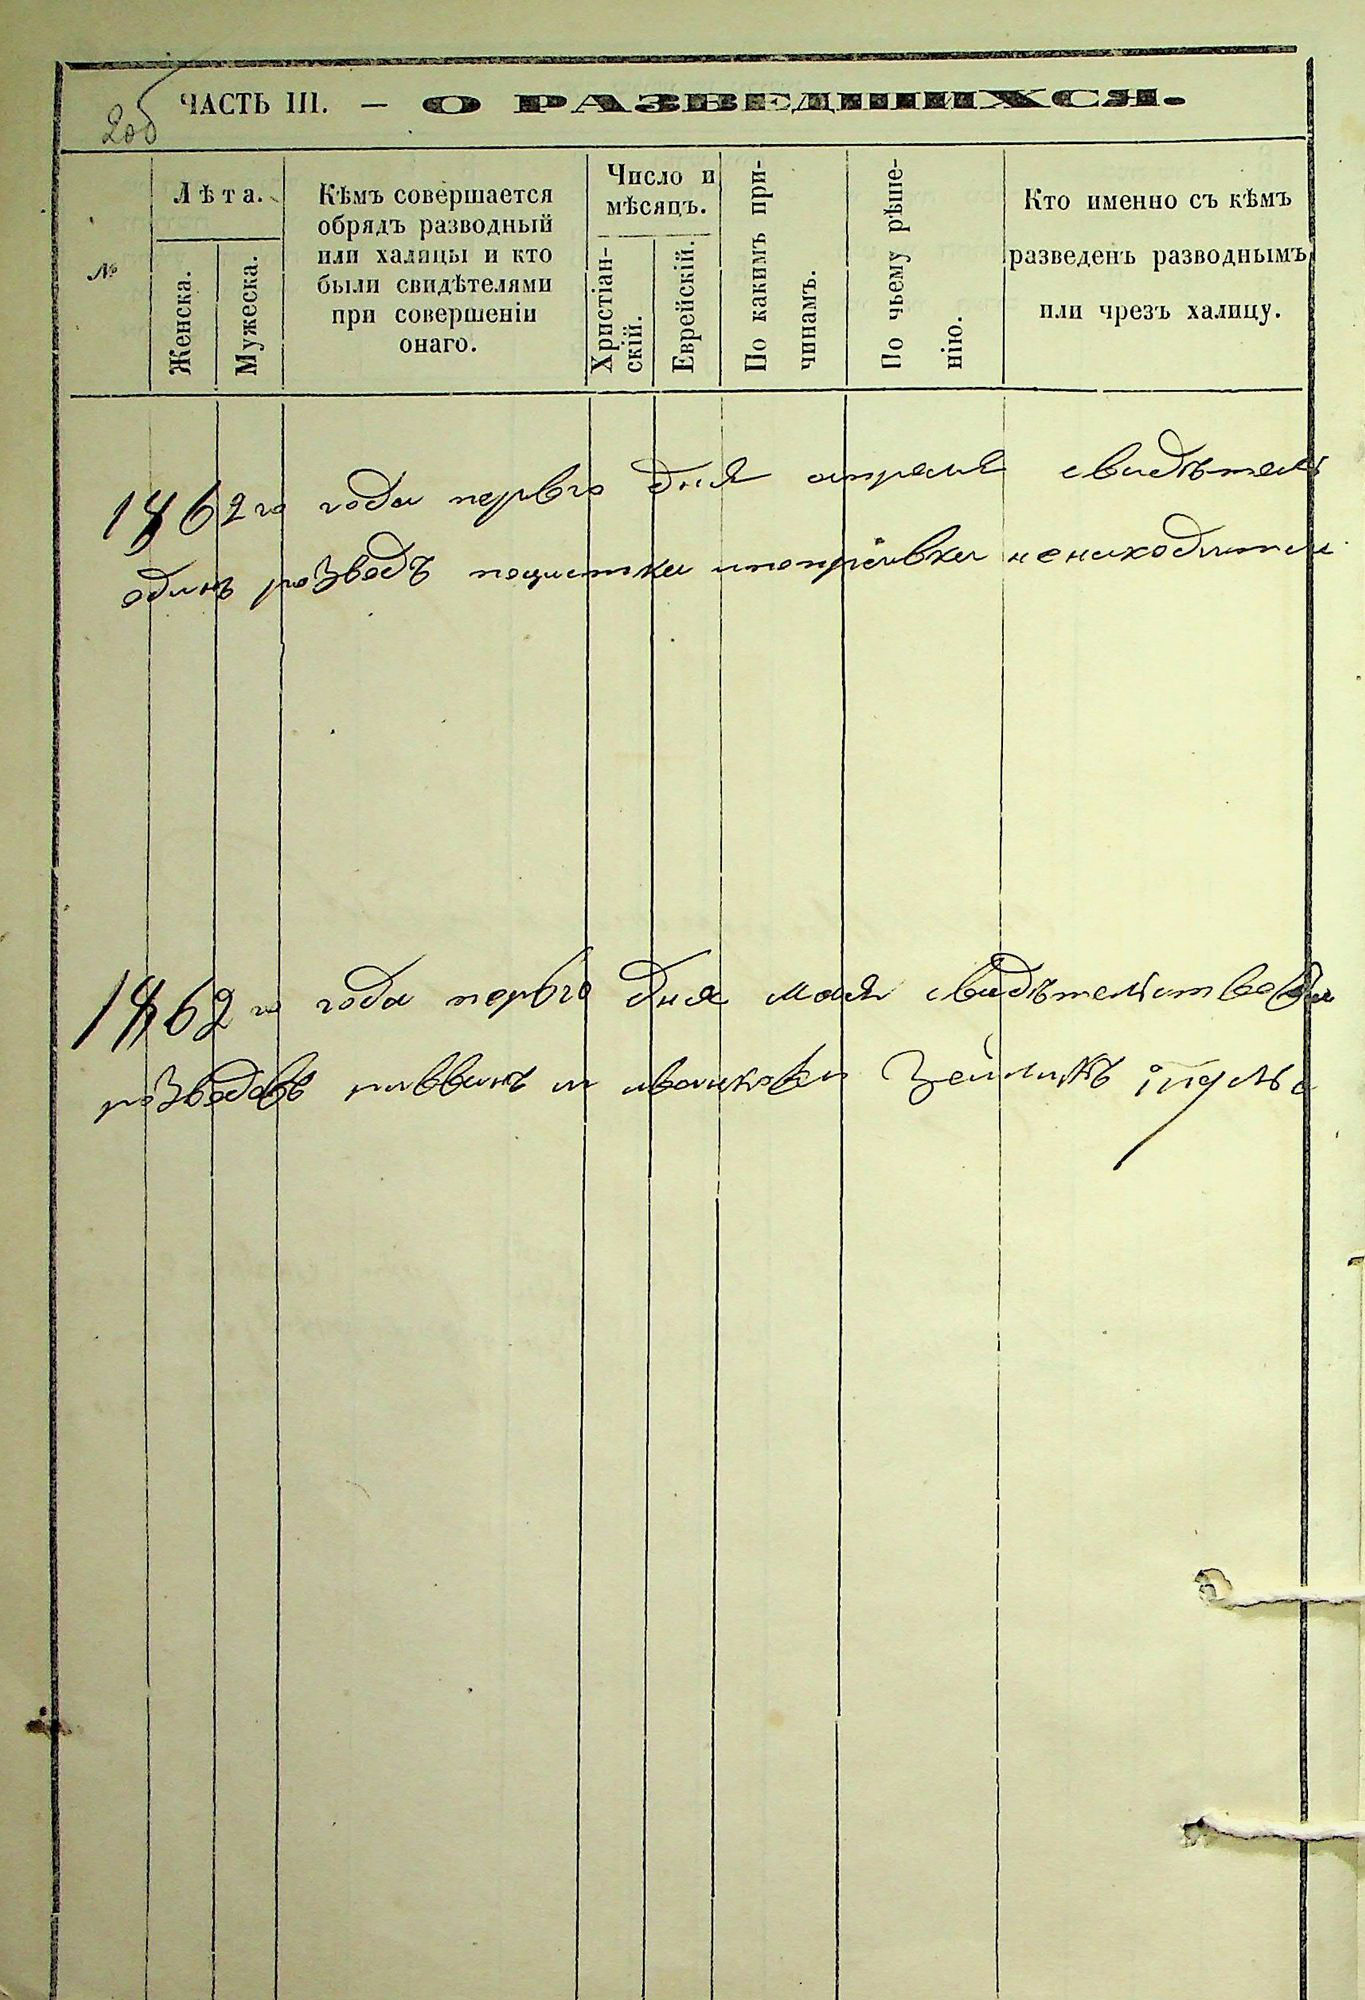 2об
ЧАСТЬ III. — О РАЗВЕДШИХСЯ.
№
Лѣта.
Женска.
Мужеска.
Кѣмъ совершается
обрядъ разводный
или халицы и кто
были свидѣтелями
при совершеніи
онаго.
Число и
мѣсяцъ.
Христіан-
скій.
Еврейскій.
По какимъ при-
чинамъ.
По чьему рѣше-
нію.
Кто именно съ кѣмъ
разведенъ разводнымъ
или чрезъ халицу.
1862 го года первго дня апреля
одинъ розводъ почистки ипоправки ненаходится
1862 го года первго дня мая
розводовъ раввинъ